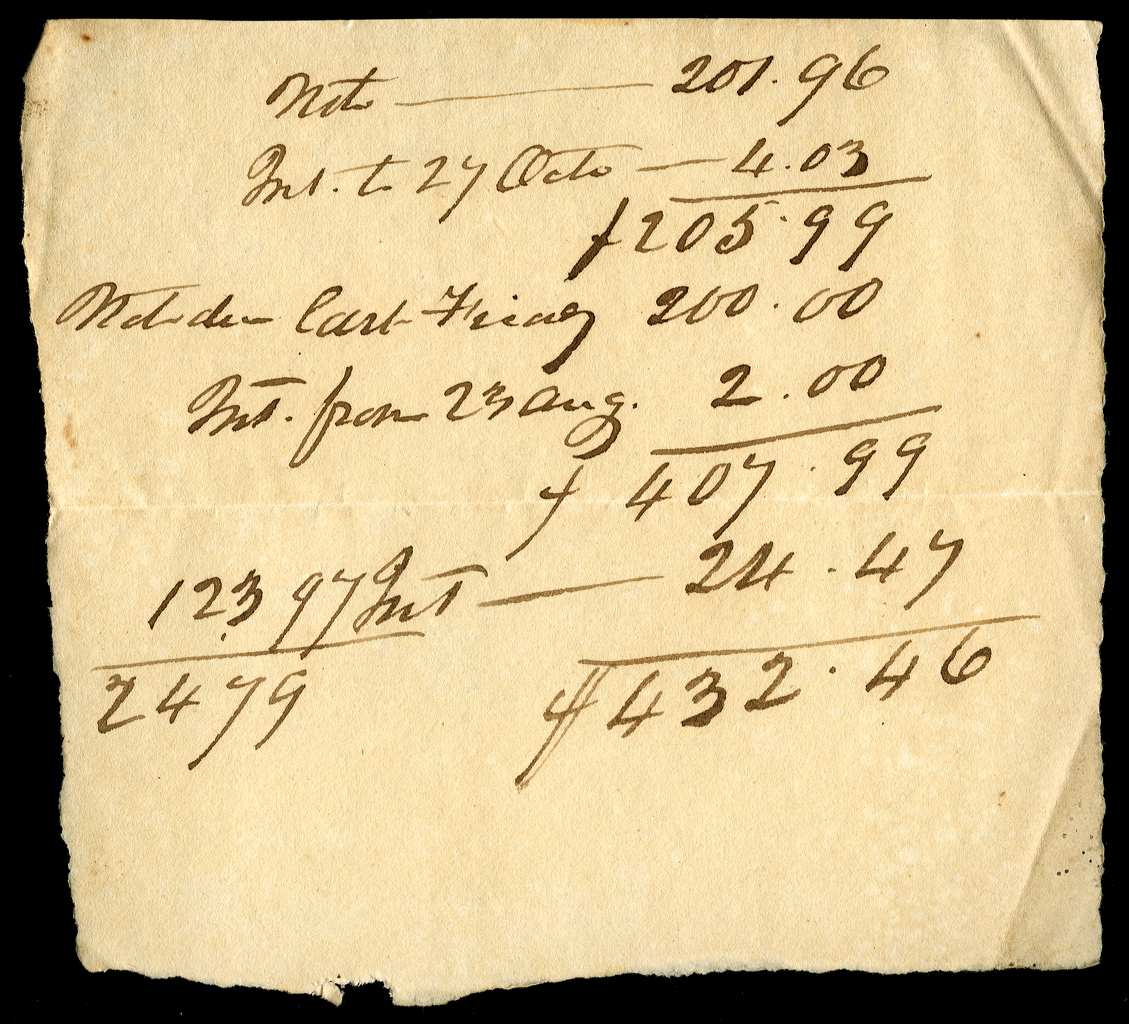 Note — 201.96
Int. to 27 Octo — 4.03
$205.99
Note due last Friday 200.00
Int. from 23 Aug. 2.00
$407.99
123 97 Int — 24.47
2479 $432.46